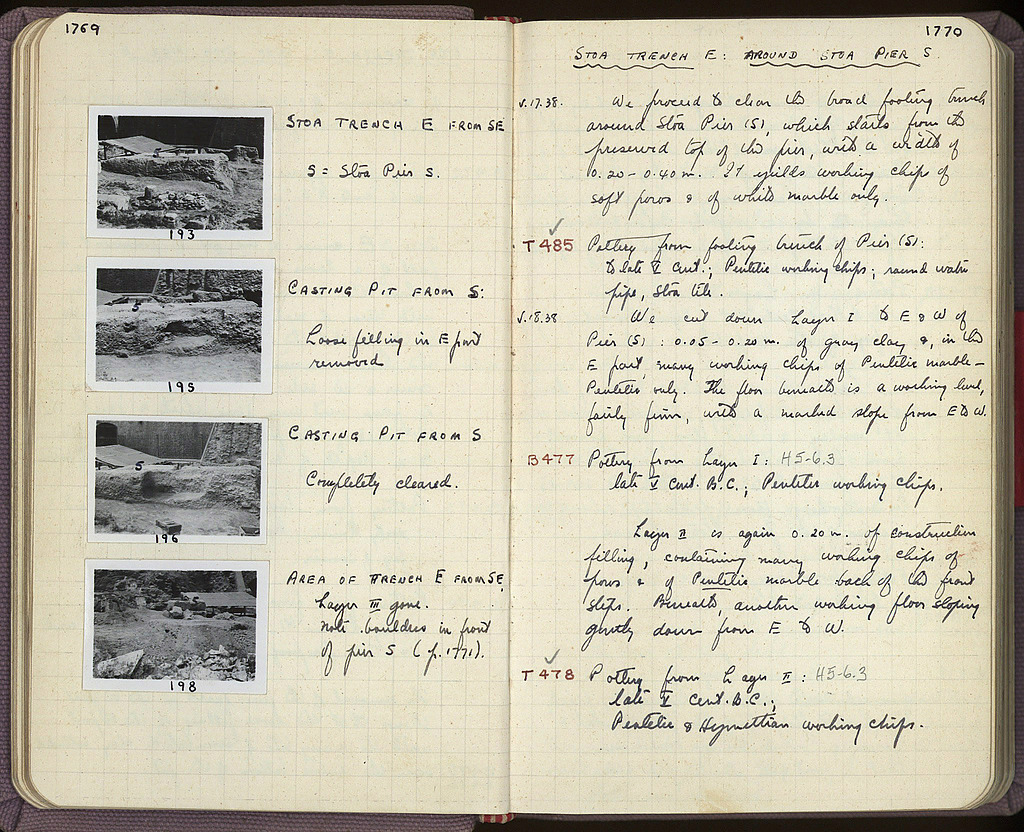 1769
STOA TRENCH E FROM SE
S = Stoa Pier S.
193
CASTING PIT FROM S:
Loose filling in E part
removed
S
195
CASTING PIT FROM S
Completely cleared.
S
196
AREA OF TRENCH E FROM SE,
Layer III gone.
Note boulders in front
of pier S (p. 1771).
198
1770
STOA TRENCH E: AROUND STOA PIER S.
V.17.38.
We proceed to clear the broad footing trench
around Stoa Pier (S), which starts from the
preserved top of the pier, with a width of
0.20 - 0.40 m. It yields working chips of
soft poros & of white marble only.
T 485
Pottery from footing trench of Pier (S):
to late V Cent.; Pentelic working chips; round water
pipe, Stoa tile.
V.18.38
We cut down Layer I to E & W of
Pier (S): 0.05 - 0.20 m. of gray clay &, in the
E part many working chips of Pentelic marble -
Pentelic only. The floor beneath is a working level,
fairly firm, with a marked slope from E to W.
B 477
Pottery from Layer I: H5-6.3
late V Cent. B.C.; Pentelic working chips.
Layer II is again 0.20 m. of construction
filling, containing many working chips of
poros & of Pentelic marble back of the front
steps. Beneath, another working floor sloping
gently down from E to W.
T 478
Pottery from Layer II: H5-6.3
late V Cent. B.C.;
Pentelic & Hymettian working chips.